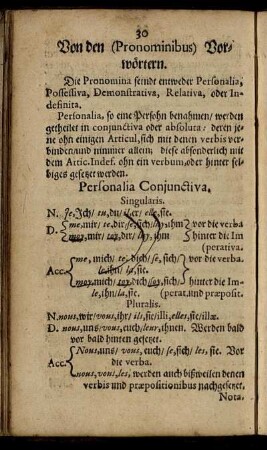 30
Von den (Pronominibus) Vor-
wörtern.
Die Pronomina seindt entweder Personalia,
Possessiva, Demonstrativa, Relativa, oder In-
definita.
Personalia, so eine Persohn benahmen/ werden
getheilet in conjunctiva oder absoluta: deren je-
ne ohn einigen Articul, sich mit denen verbis ver-
hinden und nimmer allein; diese absonderlich mit
dem Artic. Indef. ohn ein verbum, oder hinter sel-
biges gesetzet werden.
Personalia Conjunctiva.
Singularis.
N. Je, Ich/ tu, du/ il, er/ elle, sie.
D. me, mir/ te, dir/ se, sich/ ihm vor die verba
moy, mir/ toy, dir/ luy, ihm hinter die Im
(perativa.
Acc. me, mich/ te, dich/ se, sich/ vor die verba.
le, ihn/ la, sie.
moy, mich/ toy, dich/ soy, sich/ hinter die Im-
le, ihn/ la, sie. (perat. und præposit.
Pluralis.
N. nous, wir/ vous, ihr/ ils, sie/ illi, elles, sie/ illæ.
D. nous, uns/ vous, euch/ leur, ihnen. Werden bald
vor bald hinten gesetzet.
Acc. Nous, uns/ vous, euch/ se, sich/ les, sie. Vor
die verba.
nous, vous, les, werden auch bißweilen denen
verbis und præpositionibus nachgesetzet.
Nota.